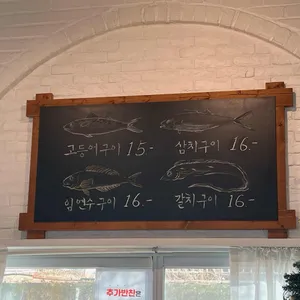 고등어구이 15-
삼치구이 16-
임연수구이 16-
갈치구이 16-
추가반찬은